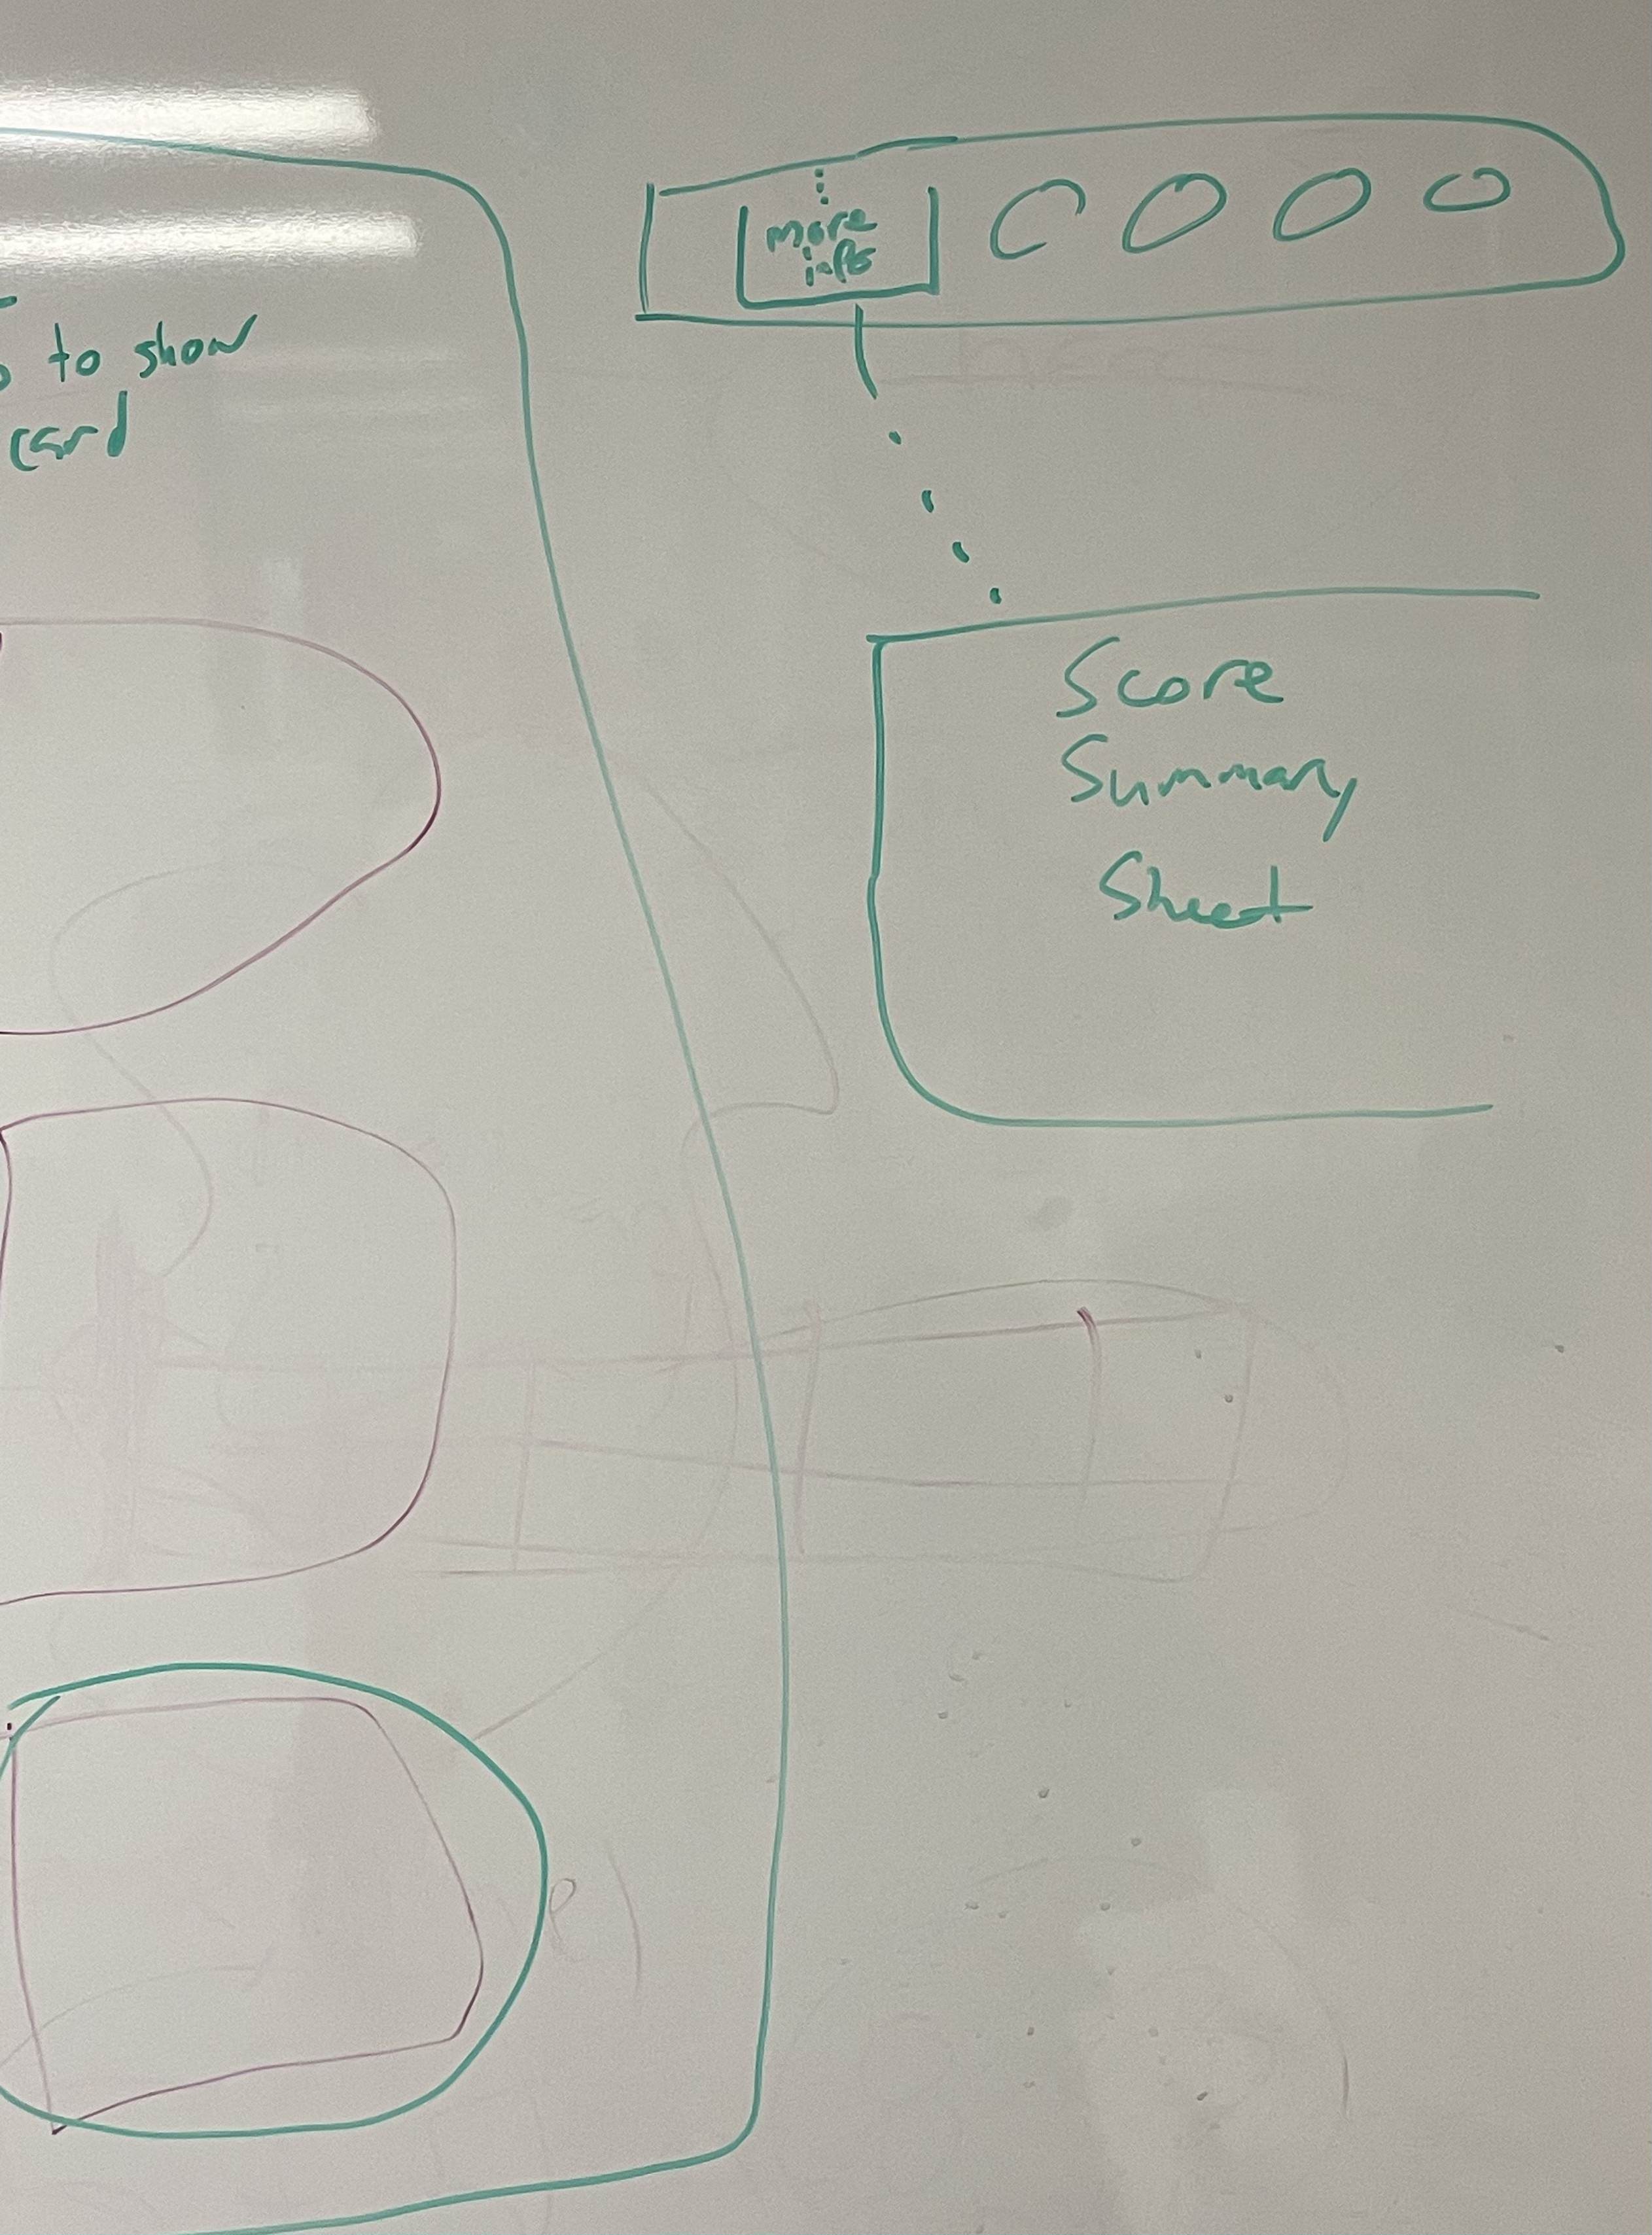 to show
card
more
info
Score
Summary
Sheet